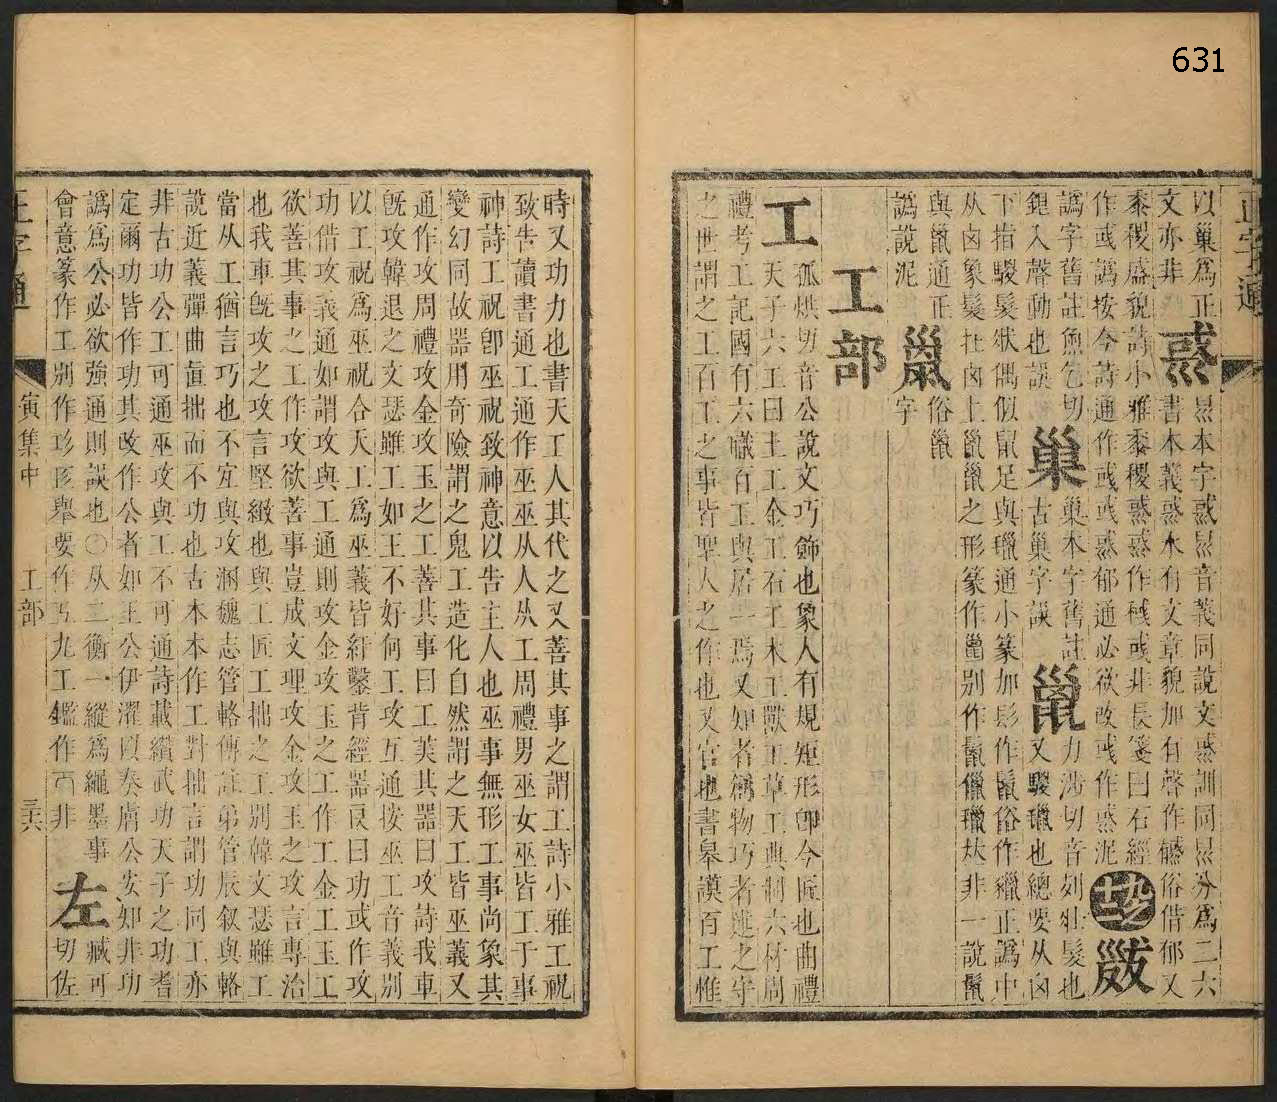 631
正字通
以巢爲正
文亦非
𢧢
㬎本字惑㬎音義同說文惑訓同㬎分爲二六
書本義惑水有文章貌加有聲作𢒰俗借郁又
黍稷盛貌詩小雅黍稷惑惑作彧或非長箋曰石經
作或譌按今詩通作或或惑郁通必欲改或作惑泥
十九
譌字舊註魚乞切
鋃入聲動也誤
巢
巢本字舊註
古巢字誤
力涉切音列壯髮也
又騣㺍也總要从囟
下指騣髮狀偶似鼠足與㺍通小篆加髟作鬣俗作䝓正譌中
从囟象髮在囟上巤巤之形篆作巤別作鬣儠㺍𠀤非一說鬣
與巤通正
譌說泥
俗巤
字
工部
工
孤烘切音公說文巧飾也象人有規矩形卽今匠也曲禮
天子六工曰土工金工石工木工獸工草工典制六材周
禮考工記國有六職百工與居一焉又知者創物巧者述之守
之世謂之工百工之事皆聖人之作也又官也書皋謨百工惟
時又功力也書天工人其代之又善其事之謂工詩小雅工祝
致告讀書通工通作巫巫从人从工周禮男巫女巫皆工于事
神詩工祝卽巫祝致神意以告主人也巫事無形工事尚象其
變幻同故器用奇險謂之鬼工造化自然謂之天工皆巫義又
通作攻周禮攻金攻玉之工善其事曰工美其器曰攻詩我車
旣攻韓退之文瑟雖工如王不好何工攻互通按巫工音義別
以工祝爲巫祝合天工爲巫義皆紆鑿背經器良曰功或作攻
功借攻義通如謂攻與工通則攻金攻玉之工作工金工玉工
欲善其事之工作攻欲善事豈成文理攻金攻玉之攻言專治
也我車旣攻之攻言堅緻也與工匠工拙之工別韓文瑟雖工
當从工猶言巧也不宜與攻溷魏志管輅傳註弟管辰敘與輅
說近義彈曲直拙而不功也古本本作工對拙言謂功同工亦
非古功公工可通巫攻與工不可通詩載纘武功天子之功耆
定爾功皆作功其改作公者如王公伊濯以奏膚公安知非功
譌爲公必欲強通則誤也○从二衡一縱爲繩墨事
會意篆作工別作𢒄㣉舉要作㠭九工鑑作𠀍非
左
臧可
切佐
正字通
寅集中
工部
三六